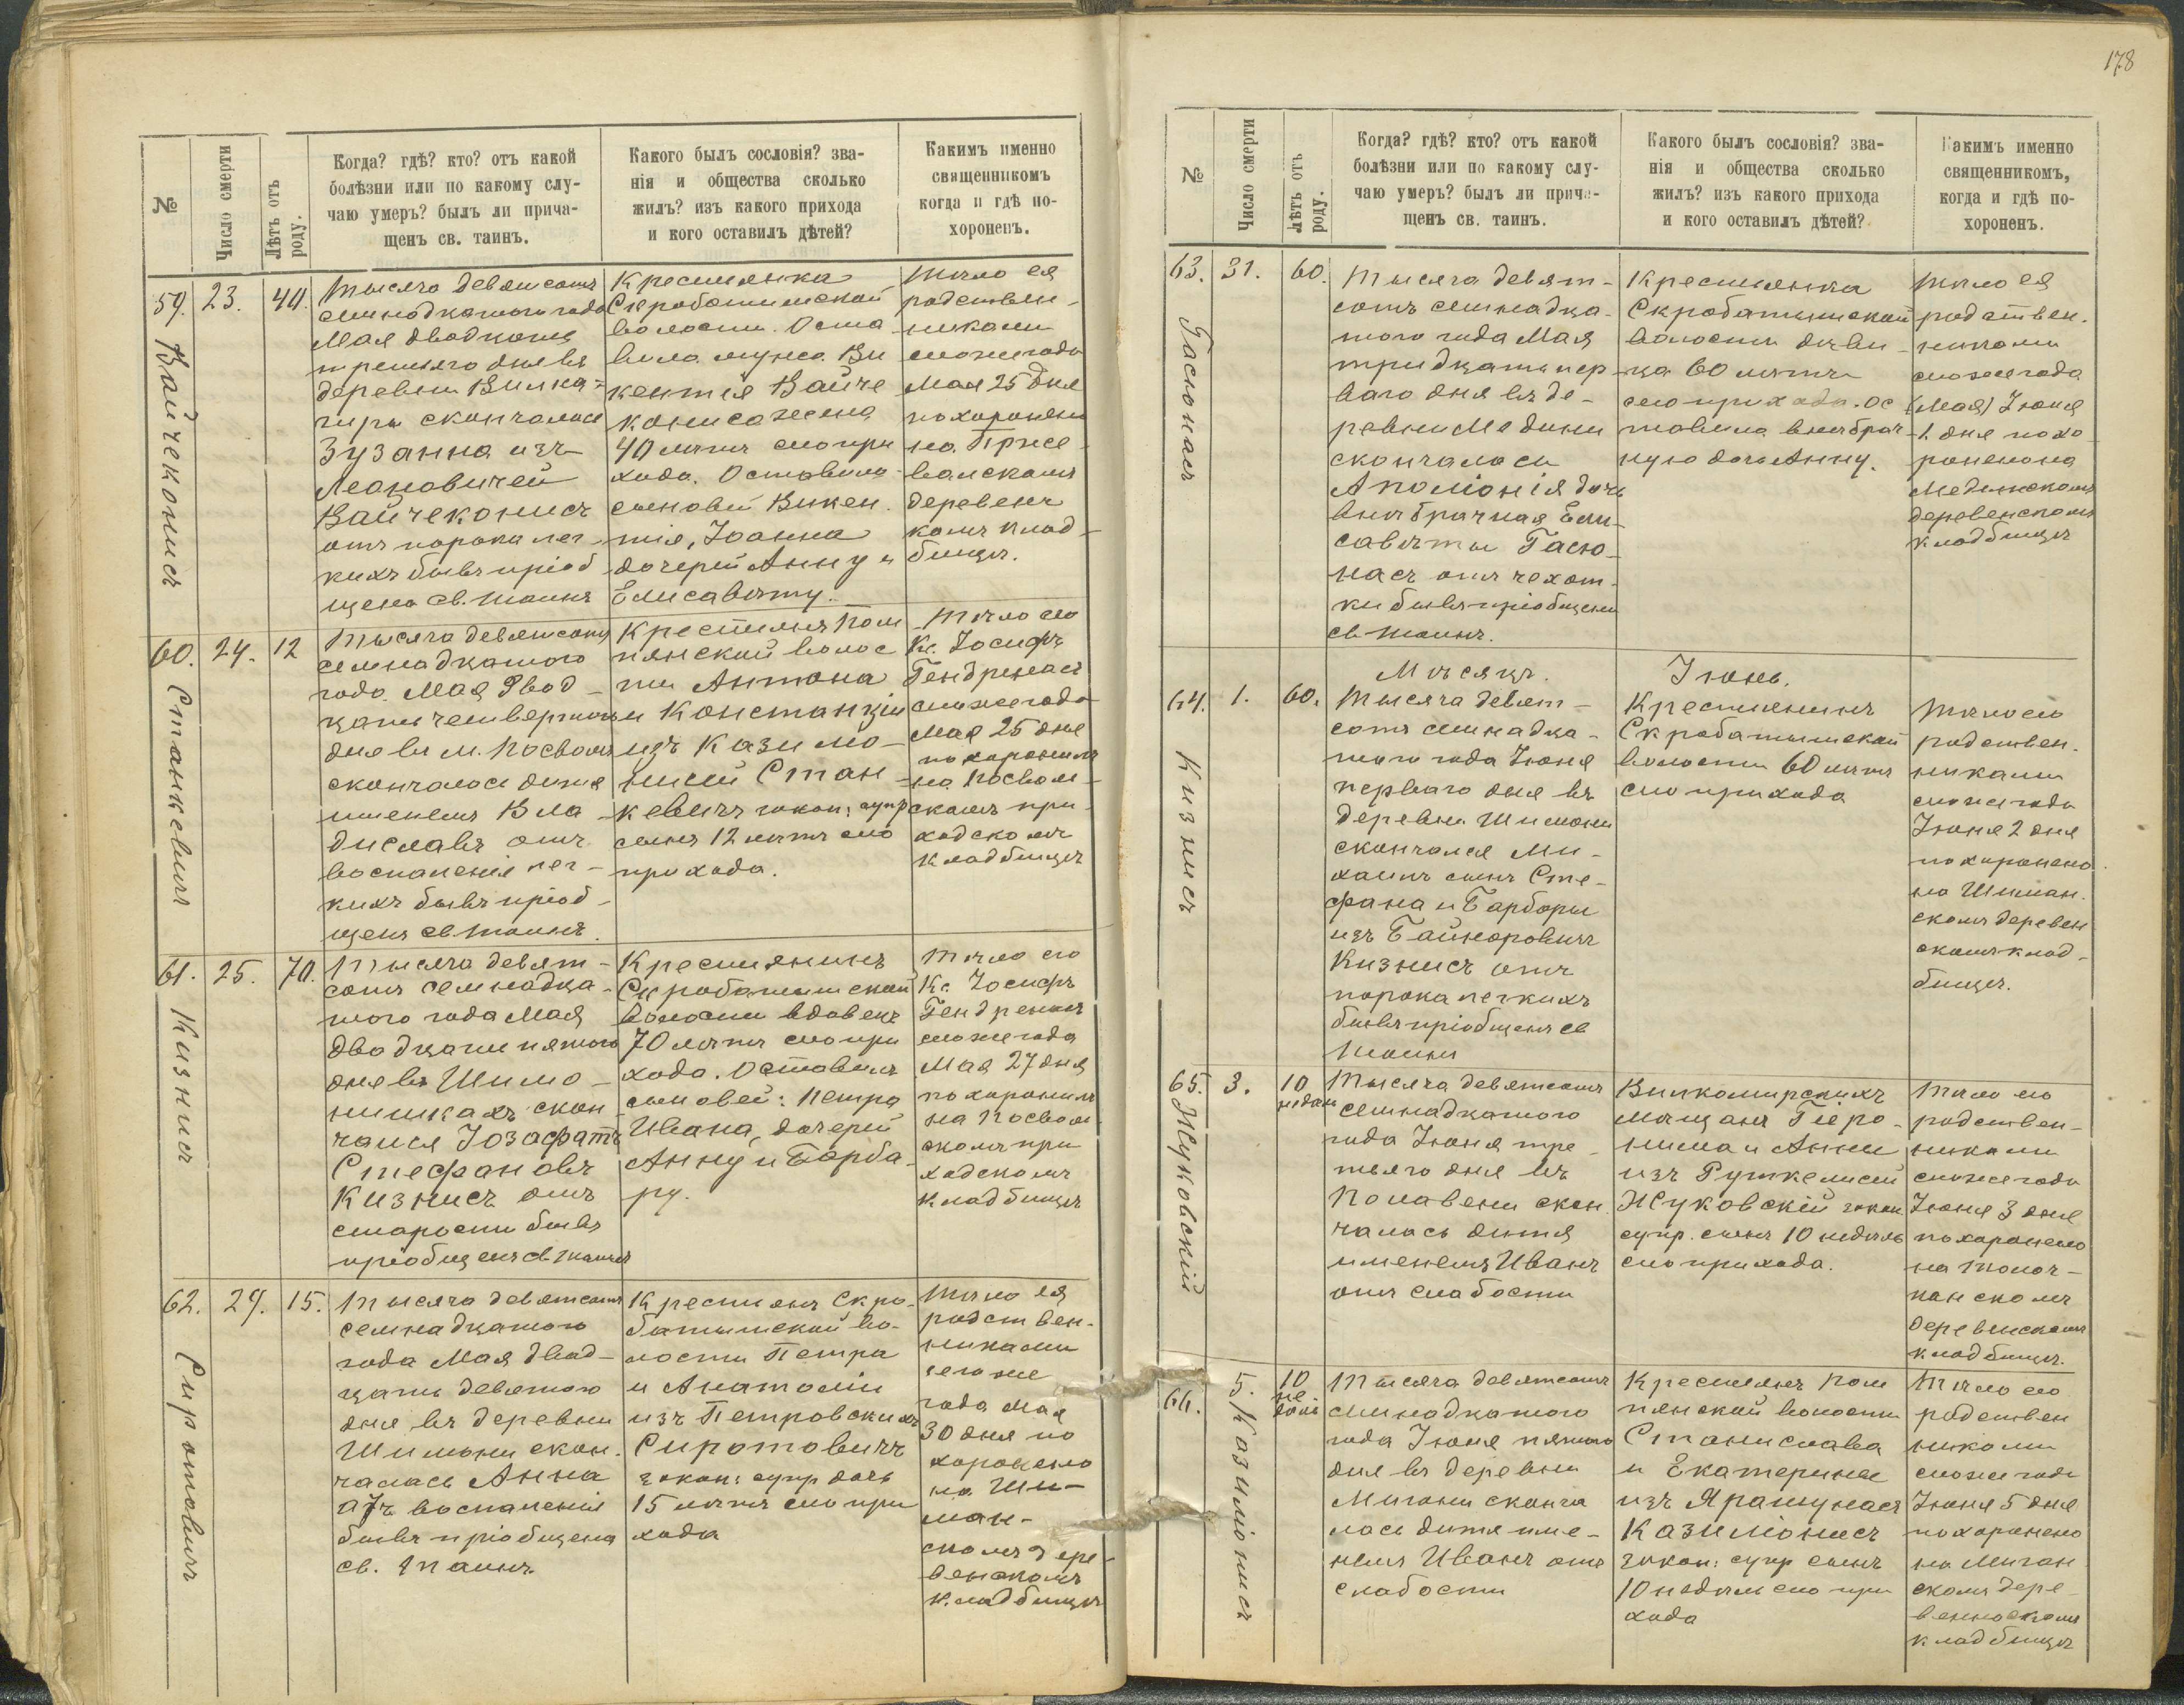 №
Число смерти
Лѣтъ отъ
роду.
Когда? гдѣ? кто? отъ какой
болѣзни или по какому слу-
чаю умеръ? былъ ли прича-
щенъ св. таинъ.
Какого былъ сословія? зва-
нія и общества сколько
жилъ? изъ какого прихода
и кого оставилъ дѣтей?
Какимъ именно
священникомъ
когда и гдѣ по-
хороненъ.
59.
23.
40.
Вайчеконисъ
Тысяча девятсотъ
семнадцатого года
Мая двадцать
третьяго дня въ
деревни Вилка-
скончалась
Зузанна изъ
Леановичей
Вайчеконисъ
отъ порока лег
кихъ бывъ пріоб
щена св. таинъ
Крестьянка
Скробатишской
волости. Оста
вила мужа Ви
кентія Вайче
кониса жена
40 лѣтъ сего при
хода. Оставила
сыновей Викен
тія, Іоанна
дочерей Анну и
Елисавету.
Тѣло ея
родствен-
никами
сего же года
Мая 25 дня
похоронено
на
деревенс
комъ клад-
бищѣ.
60.
24.
12
Станкевичъ
Тысяча девятсотъ
семнадцатого
года Мая двад-
цать четвертого
дня въ м. Посволѣ
скончалось дитя
именемъ Вла-
диславъ отъ
воспаленія лег-
кихъ бывъ пріоб-
щенъ св таинъ.
Крестьянъ Пом
пянской волос
ти Антона
и Констанціи
изъ Казимо-
Стан-
кевичъ закон: супр
сынъ 12 лѣтъ сего
прихода.
Тѣло его
Кс. Іосифъ
Гендреласъ
сего же года
Мая 25 дня
похоронилъ
на Посвол-
скомъ при-
ходскомъ
кладбищѣ
61.
25.
70.
Кизнисъ
Тысяча девят-
сотъ семнадца-
того года Мая
двадцати пятого
дня въ Шимо-
нишкахъ скон-
чался Іозафатъ
Стефановъ
Кизнисъ отъ
старости бывъ
пріобщенъ св таинъ
Крестьянинъ
Скробатишской
волости вдовецъ
70 лѣтъ сего при
хода. Оставилъ
сыновей: Петра
Ивана, дочерей
Анну и Барба-
ру.
Тѣло его
Кс. Іосифъ
сего же года
Мая 27 дня
похоронилъ
на Посвол-
скомъ при
ходскомъ
кладбищѣ
62.
29.
15.
Сиротовичъ
Тысяча девятсотъ
семнадцатого
года Мая двад-
цать девятого
дня въ деревни
Шимони скон-
чалась Анна
отъ воспаленія
бывъ пріобщена
св. таинъ.
Крестьянъ Скро-
батишской во-
лости Петра
и Анатоліи
изъ Петровскихъ
Сиротовичъ
закон: супр дочь
15 лѣтъ сего при
хода
Тѣло ея
родствен-
никами
сего же
года Мая
30 дня по
хоронено
на Ши-
ман-
скомъ дере-
венскомъ
кладбищѣ
178
№
Число смерти
Лѣтъ отъ
роду.
Когда? гдѣ? кто? отъ какой
болѣзни или по какому слу-
чаю умеръ? былъ ли прича-
щенъ св. таинъ.
Какого былъ сословія? зва-
нія и общества сколько
жилъ? изъ какого прихода
и кого оставилъ дѣтей?
Какимъ именно
священникомъ,
когда и гдѣ по-
хороненъ.
63.
31.
60.
Гасюнасъ
Тысяча девят-
сотъ семнадца-
того года Мая
тридцать пер-
ваго дня въ де-
ревни Медини
скончалась
Аполіонія дочь
внѣбрачная Ели-
саветы Гасю-
насъ отъ чехот-
ки бывъ пріобщена
св таинъ.
Крестьянка
Скробатишской
волости дѣви-
ца 60 лѣтъ
сего прихода. Ос
тавила внѣбрач-
ную дочь Анну.
Тѣло ея
родствен-
никами
сего же года
(Мая) Іюня
1 дня похо-
ронено на
Мединскомъ
деревенскомъ
кладбищѣ
Мѣсяцъ.
Іюнь.
64.
1.
60.
Кизнисъ
Тысяча девят-
сотъ семнадца-
того года Іюня
перваго дня въ
деревни Шимони
скончался Ми-
хаилъ сынъ Сте-
фана и Барбары
изъ Байноровичъ
Кизнисъ отъ
порока легкихъ
бывъ пріобщенъ св
таинъ
Крестьянинъ
Скробатишской
волости 60 лѣтъ
сего прихода
Тѣло его
родствен-
никами
сего же года
Іюня 2 дня
похоронено
на Шиман-
скомъ деревен
скомъ клад-
бищѣ.
65.
3.
10
недѣль
Жуковскій
Тысяча девятсотъ
семнадцатого
года Іюня тре-
тьяго дня въ
скон
чалась дитя
именемъ Иванъ
отъ слабости
Вилкомирскихъ
мѣщанъ Гіеро-
нима и Анны
изъ
Жуковскій закон
супр. сынъ 10 недѣль
сего прихода.
Тѣло его
родствен-
никами
сего же года
Іюня 3 дня
похоронено
на
деревенскомъ
кладбищѣ.
66.
5.
10
не-
дѣль
Казиміонисъ
Тысяча девятсотъ
семнадцатого
года Іюня пятого
дня въ деревни
Мигони сконча
лась дитя име-
немъ Иванъ отъ
слабости
Крестьянъ Пом
пянской волости
Станислава
и Екатерины
изъ
Казиміонисъ
закон: супр сынъ
10 недѣль сего при
хода
Тѣло его
родствен
никами
сего же года
Іюня 5 дня
похоронено
на Миган-
скомъ дере-
венскомъ
кладбищѣ